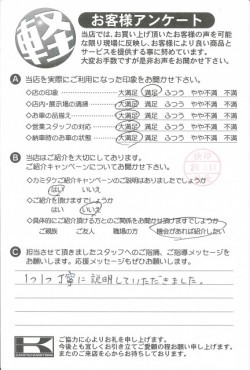 軽
お客様アンケート
当店では、お買い上げ頂いたお客様の声を可能
な限り現場に反映し、お客様により良い商品と
サービスを提供する事に努めています。
大変お手数ですが是非お声をお聞かせ下さい。
A 当店を実際にご利用になった印象をお聞かせ下さい。
◇店の印象 大満足 満足 ふつう やや不満 不満
◇店内・展示場の清掃 大満足 満足 ふつう やや不満 不満
◇お車の品揃え 大満足 満足 ふつう やや不満 不満
◇営業スタッフの対応 大満足 満足 ふつう やや不満 不満
◇納車時のお車の状態 大満足 満足 ふつう やや不満 不満
B 当店はご紹介を大切にしております。
ご紹介キャンペーンについてお聞かせ下さい。
◇カミタケご紹介キャンペーンのご説明はありましたでしょうか
はい いいえ
◇ご紹介を頂けますでしょうか
はい いいえ
◇具体的にご紹介頂ける方とのご関係をお聞かせ頂けますでしょうか
ご親族 ご友人 職場の方 機会があれば紹介したい
C 担当させて頂きましたスタッフへのご指摘、ご指導メッセージを
お願いします。応援メッセージもぜひお願いします。
1つ1つ丁寧に説明していただきました。
ご協力に心よりお礼を申し上げます。
今後とも宜しくお引き立てご愛顧の程お願い申し上げます。
またのご来店を心からお待ちしております。